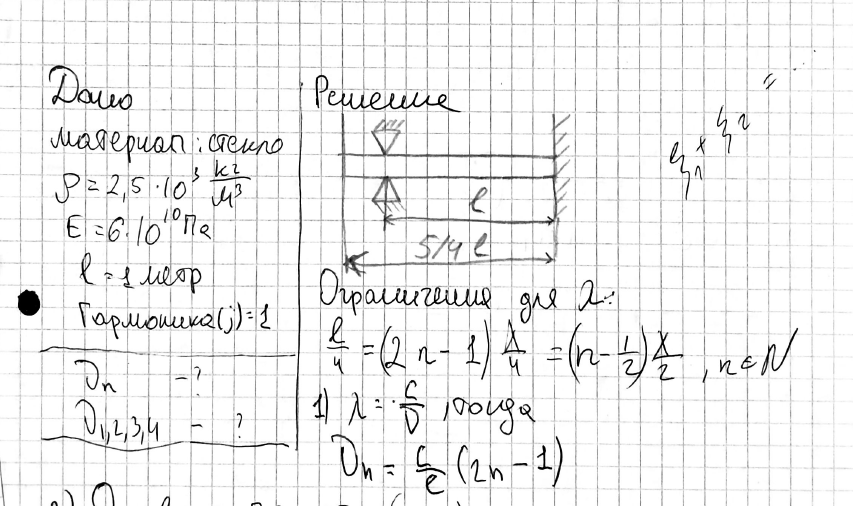 Дано
материал: стекло
ρ = 2,5 · 10³ кг/м³
E = 6 · 10¹⁰ Па
l = 1 метр
Гармоника (j) = 1
νn - ?
ν1,2,3,4 - ?
Решение
l
5/4 l
Ограничения для λ:
l/4 = (2n - 1) λ/4 = (n - 1/2) λ/2 , n ∈ N
1) λ = c/ν , тогда
νn = c/l (2n - 1)